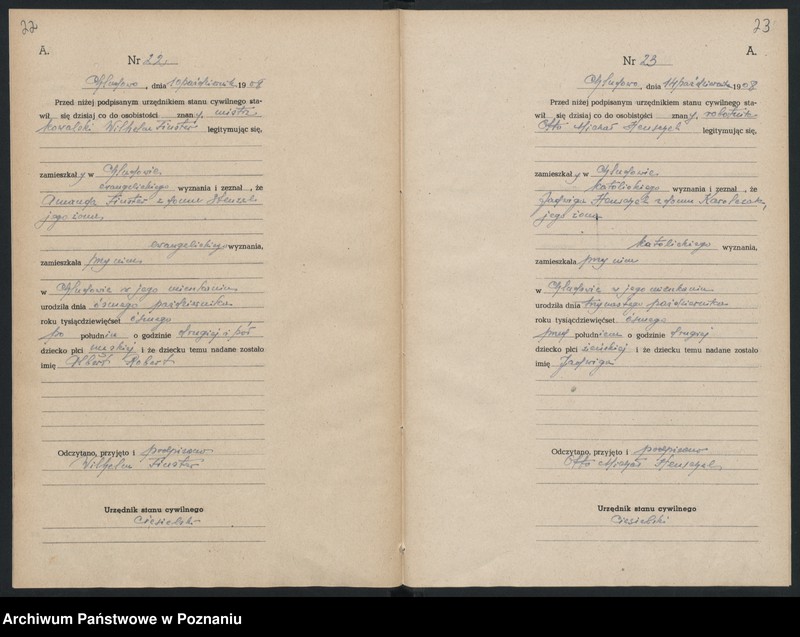 22
A.
Nr 22.
Chludowo, dnia 10 października 1908
Przed niżej podpisanym urzędnikiem stanu cywilnego sta-
wił się dzisiaj co do osobistości znany, mistrz
kowalski Wilhelm Finster legitymując się,
zamieszkały w Chludowie
evangelickiego wyznania i zeznał, że
Amanda Finster z domu
jego żona
evangelickiego wyznania,
zamieszkała przy nim
w Chludowie w jego mieszkaniu
urodziła dnia ósmego października
roku tysiącdziewięćset ósmego
po południu o godzinie drugiej i pół
dziecko płci męskiej i że dziecku temu nadane zostało
imię Albert Robert
Odczytano, przyjęto i podpisano
Wilhelm Finster
Urzędnik stanu cywilnego
Ciesielski
23
A.
Nr 23
Chludowo, dnia 14 października 1908
Przed niżej podpisanym urzędnikiem stanu cywilnego sta-
wił się dzisiaj co do osobistości znany, robotnik
Otto Michał legitymując się,
zamieszkały w Chludowie
katolickiego wyznania i zeznał, że
Jadwiga z domu
jego żona
katolickiego wyznania,
zamieszkała przy nim
w Chludowie w jego mieszkaniu
urodziła dnia trzynastego października
roku tysiącdziewięćset ósmego
przed południem o godzinie drugiej
dziecko płci żeńskiej i że dziecku temu nadane zostało
imię Jadwiga
Odczytano, przyjęto i podpisano
Otto Michał
Urzędnik stanu cywilnego
Ciesielski
Archiwum Państwowe w Poznaniu